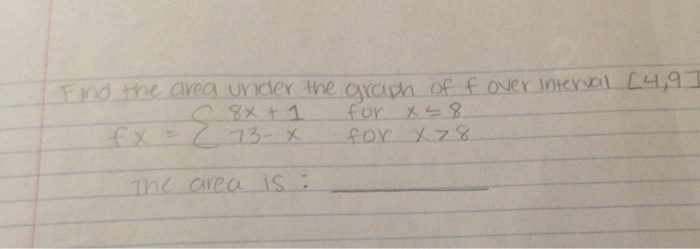 Find the area under the graph of f over interval [4,9]
fx = { 8x + 1 for x ≤ 8
73 - x for x > 8
The area is :